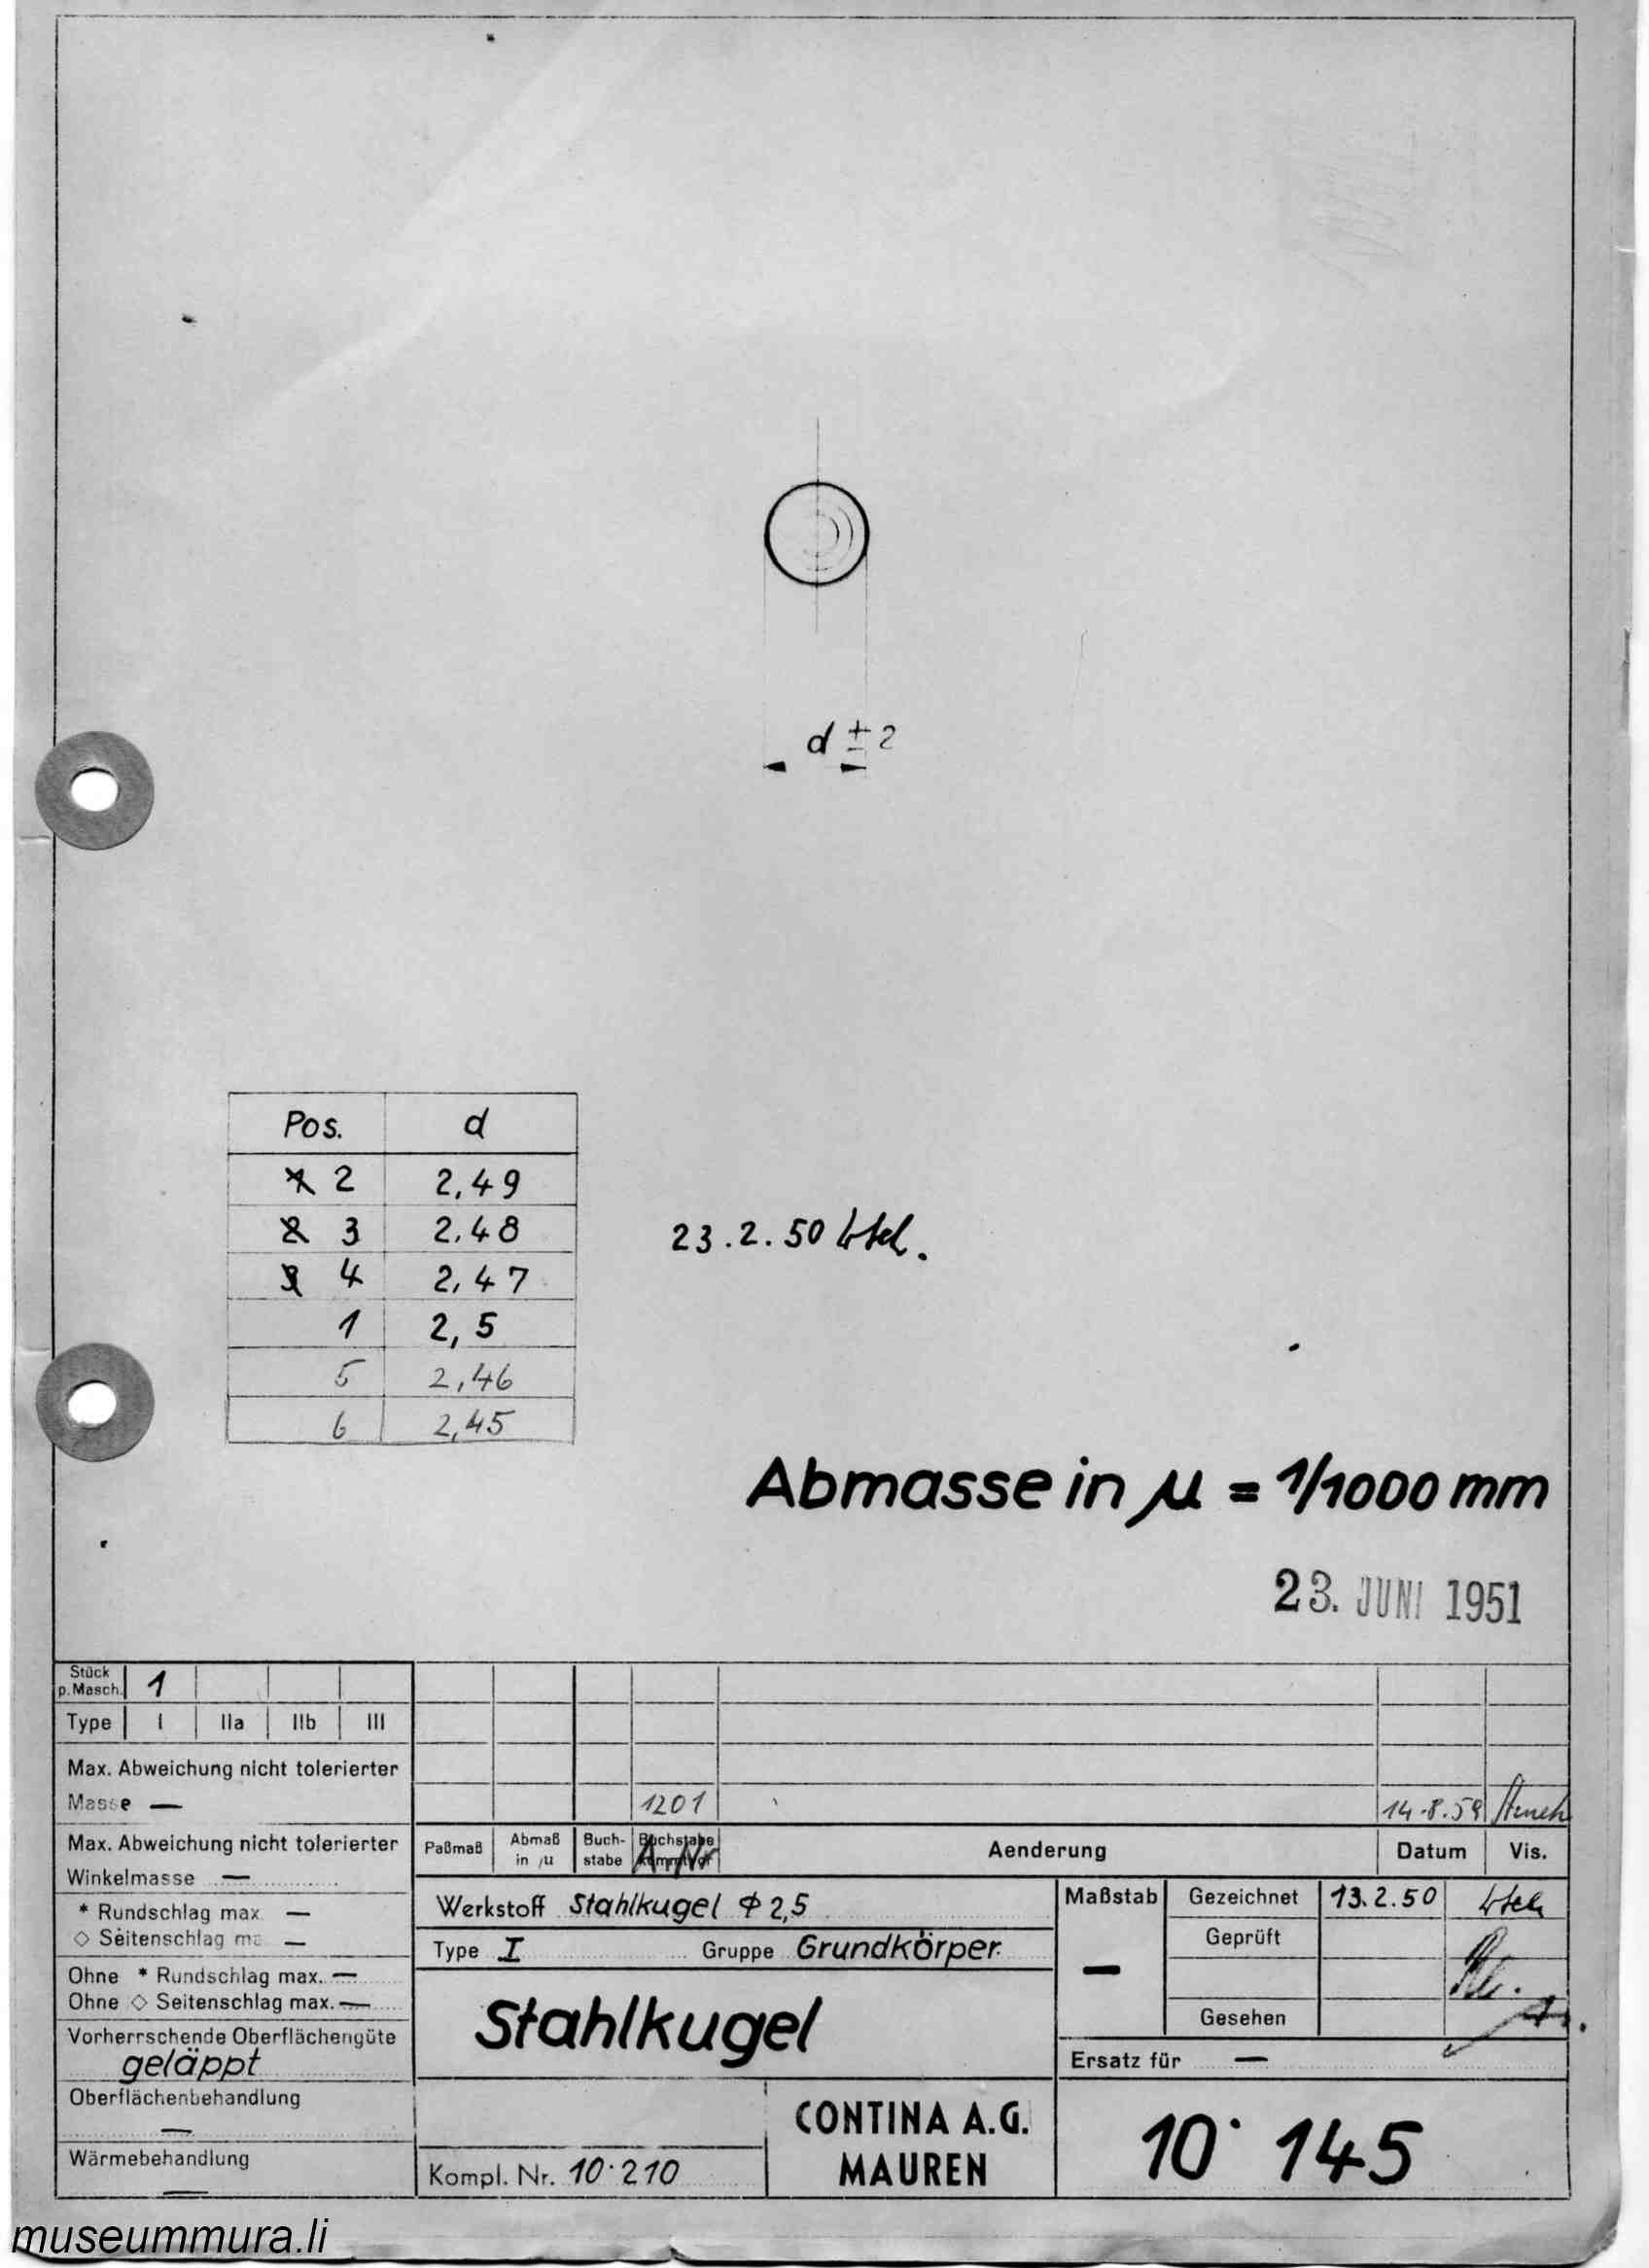 d ± 2
Pos. d
2 2,49
3 2,48
4 2,47
1 2,5
5 2,46
6 2,45
23.2.50
Abmasse in µ = 1/1000 mm
23. JUNI 1951
Stück
p. Masch. 1
Type I IIa IIb III
Max. Abweichung nicht tolerierter
Masse —
Max. Abweichung nicht tolerierter
Winkelmasse —
* Rundschlag max. —
◇ Seitenschlag —
Ohne * Rundschlag max. —
Ohne ◇ Seitenschlag max. —
Vorherrschende Oberflächengüte
geläppt
Oberflächenbehandlung
—
Wärmebehandlung
—
1201 14.8.59
Paßmaß Abmaß in µ Buchstabe Ä Nr Aenderung Datum Vis.
Werkstoff Stahlkugel ϕ 2,5
Type I Gruppe Grundkörper
Stahlkugel
Kompl. Nr. 10·210
CONTINA A.G.
MAUREN
Maßstab
—
Gezeichnet 13.2.50
Geprüft
Gesehen
Ersatz für —
10· 145
museummura.li